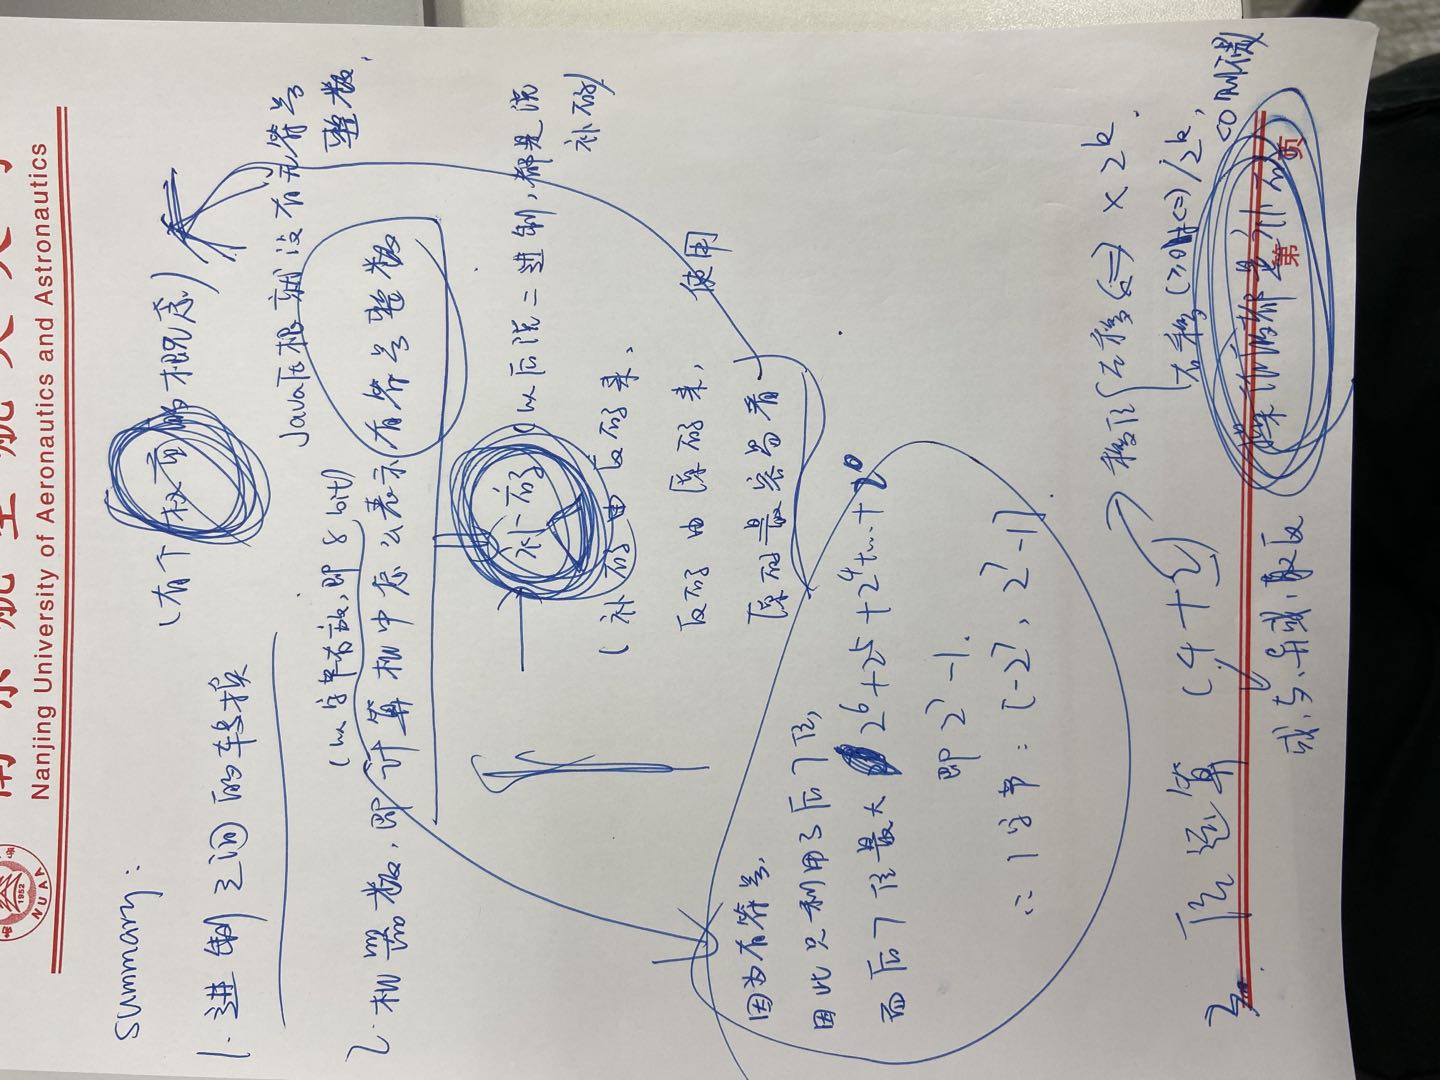 Nanjing University of Aeronautics and Astronautics
1952
NUAA
summary:
(有个权重的概念)
1. 进制之间的转换
Java压根就没有无符号
整数,
(以字节存放,即 8 bit)
2. 机器数,即计算机中怎么表示有符号整数
补码 (以后说二进制,都是说
补码)
(补码由反码来,
反码由原码来,
使用
原码最容易看
因为有符号,
因此只利用了后7位,
而后7位最大 2⁶+2⁵+2⁴+...+2⁰
即 2⁷-1.
∴ 1字节: [-2⁷, 2⁷-1]
移位{左移(<=>) × 2ᵏ.
右移(≥0时<=>)/2ᵏ,
<0则不是
3. 位运算 (4+2)
或、与、异或、取反
操作的都是补码
第 页